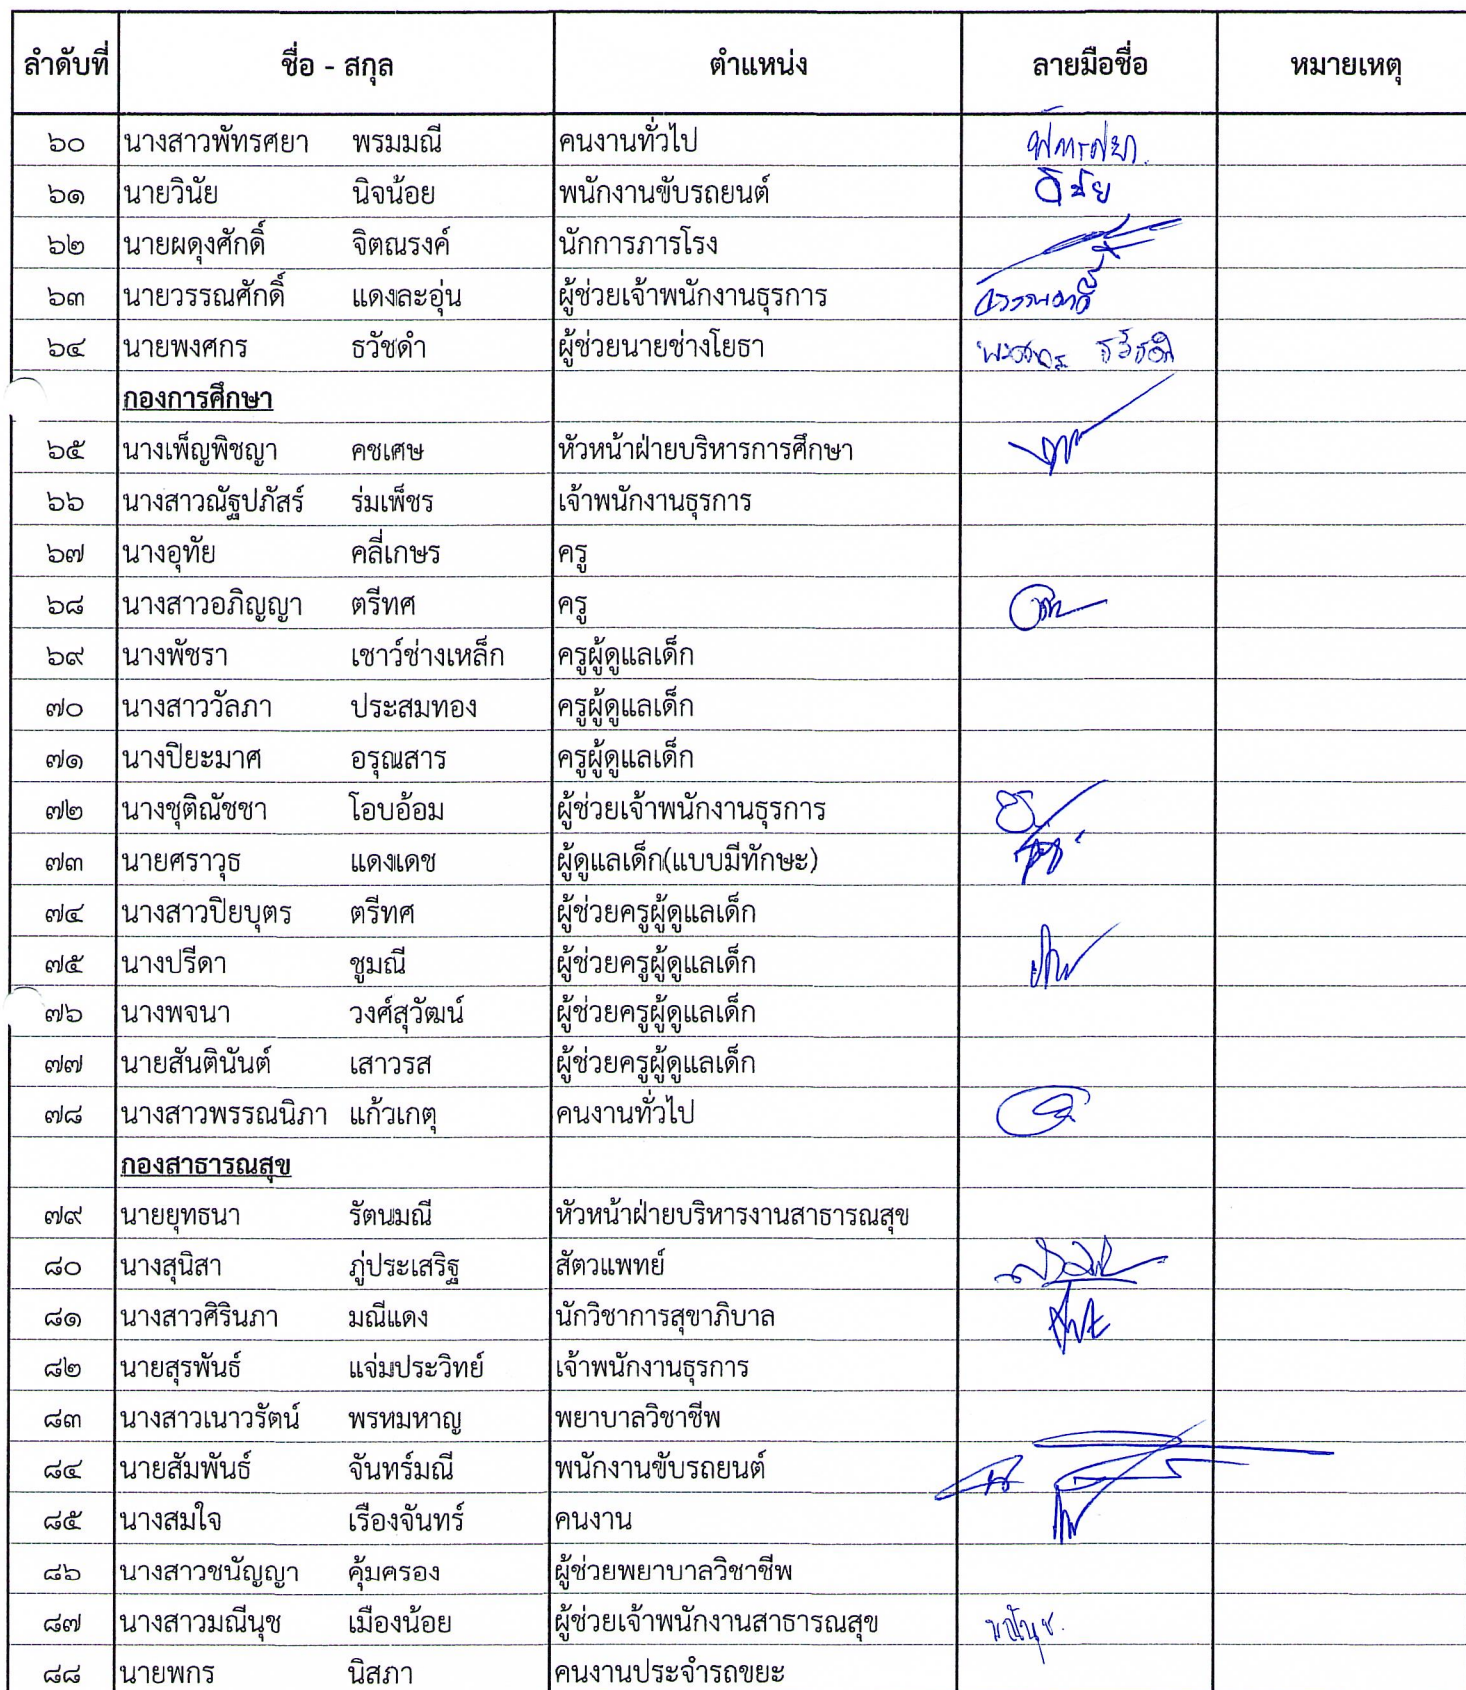 ลำดับที่ ชื่อ - สกุล ตำแหน่ง ลายมือชื่อ หมายเหตุ
๖๐ นางสาวพัทรศยา พรมมณี คนงานทั่วไป พัทรศยา
๖๑ นายวินัย นิจน้อย พนักงานขับรถยนต์ วินัย
๖๒ นายผดุงศักดิ์ จิตณรงค์ นักการภารโรง
๖๓ นายวรรณศักดิ์ แดงละอุ่น ผู้ช่วยเจ้าพนักงานธุรการ วรรณศักดิ์
๖๔ นายพงศกร ธวัชดำ ผู้ช่วยนายช่างโยธา พงศกร ธวัชดำ
กองการศึกษา
๖๕ นางเพ็ญพิชญา คชเศษ หัวหน้าฝ่ายบริหารการศึกษา
๖๖ นางสาวณัฐปภัสร์ ร่มเพ็ชร เจ้าพนักงานธุรการ
๖๗ นางอุทัย คลี่เกษร ครู
๖๘ นางสาวอภิญญา ตรีทศ ครู
๖๙ นางพัชรา เชาว์ช่างเหล็ก ครูผู้ดูแลเด็ก
๗๐ นางสาววัลภา ประสมทอง ครูผู้ดูแลเด็ก
๗๑ นางปิยะมาศ อรุณสาร ครูผู้ดูแลเด็ก
๗๒ นางชุติณัชชา โอบอ้อม ผู้ช่วยเจ้าพนักงานธุรการ
๗๓ นายศราวุธ แดงเดช ผู้ดูแลเด็ก(แบบมีทักษะ)
๗๔ นางสาวปิยบุตร ตรีทศ ผู้ช่วยครูผู้ดูแลเด็ก
๗๕ นางปรีดา ชูมณี ผู้ช่วยครูผู้ดูแลเด็ก
๗๖ นางพจนา วงศ์สุวัฒน์ ผู้ช่วยครูผู้ดูแลเด็ก
๗๗ นายสันตินันต์ เสาวรส ผู้ช่วยครูผู้ดูแลเด็ก
๗๘ นางสาวพรรณนิภา แก้วเกตุ คนงานทั่วไป
กองสาธารณสุข
๗๙ นายยุทธนา รัตนมณี หัวหน้าฝ่ายบริหารงานสาธารณสุข
๘๐ นางสุนิสา ภู่ประเสริฐ สัตวแพทย์
๘๑ นางสาวศิรินภา มณีแดง นักวิชาการสุขาภิบาล
๘๒ นายสุรพันธ์ แจ่มประวิทย์ เจ้าพนักงานธุรการ
๘๓ นางสาวเนาวรัตน์ พรหมหาญ พยาบาลวิชาชีพ
๘๔ นายสัมพันธ์ จันทร์มณี พนักงานขับรถยนต์
๘๕ นางสมใจ เรืองจันทร์ คนงาน
๘๖ นางสาวชนัญญา คุ้มครอง ผู้ช่วยพยาบาลวิชาชีพ
๘๗ นางสาวมณีนุช เมืองน้อย ผู้ช่วยเจ้าพนักงานสาธารณสุข มณีนุช
๘๘ นายพกร นิสภา คนงานประจำรถขยะ